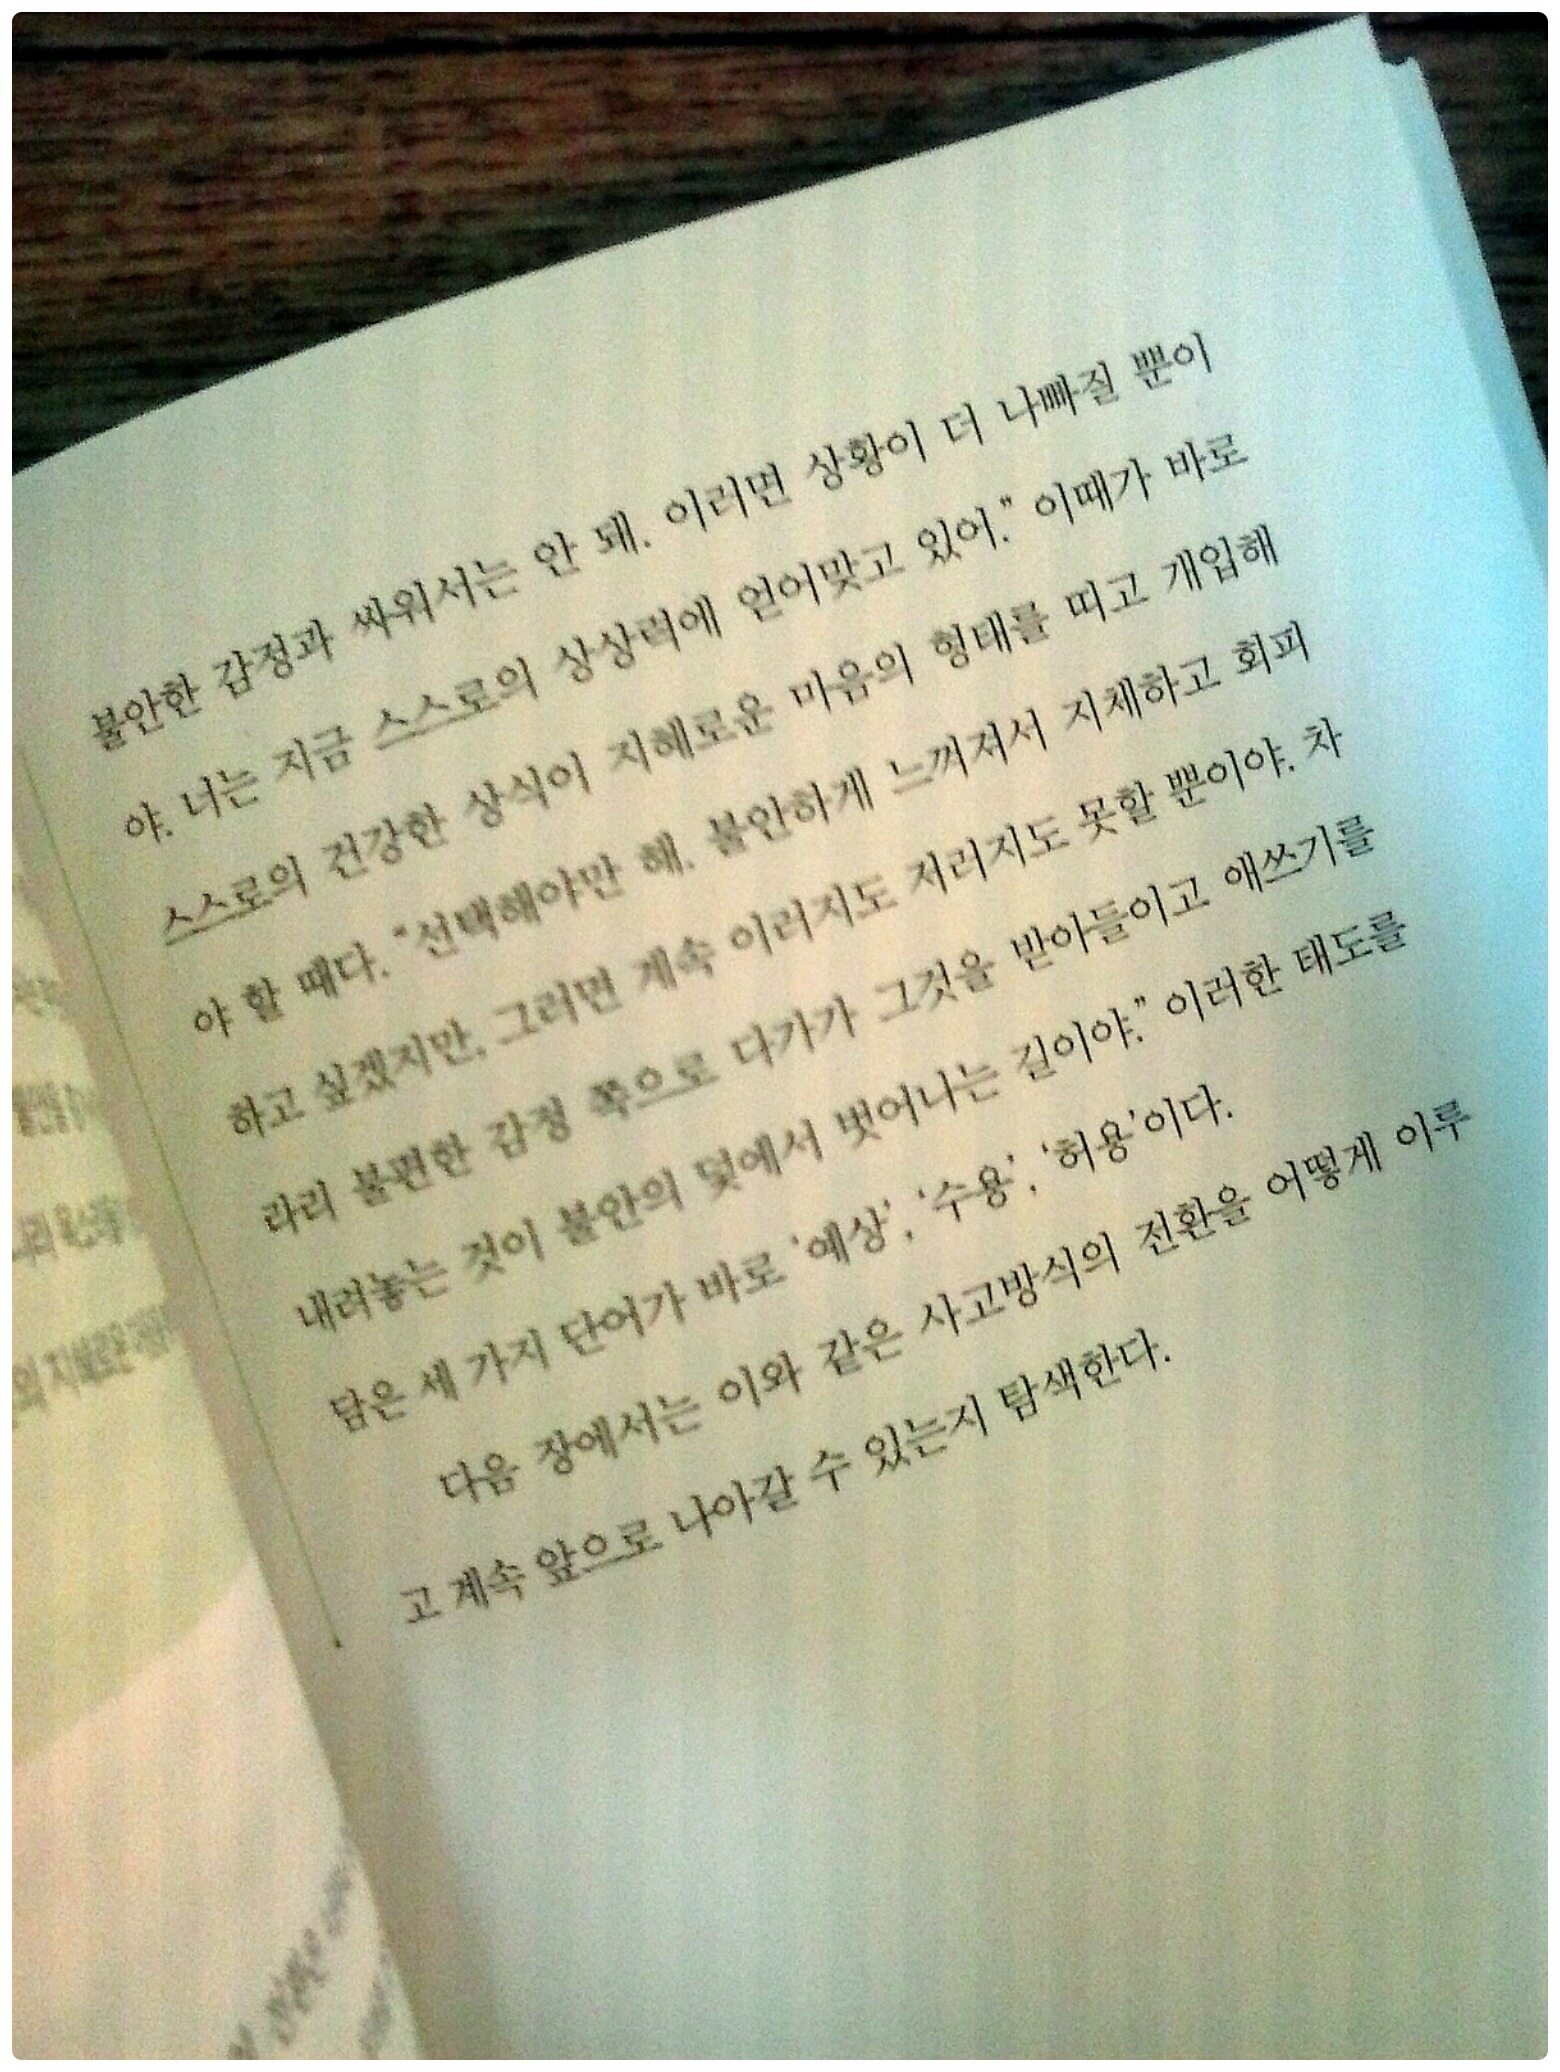 불안한 감정과 싸워서는 안 돼. 이러면 상황이 더 나빠질 뿐이
야. 너는 지금 스스로의 상상력에 얻어맞고 있어.” 이때가 바로
스스로의 건강한 상식이 지혜로운 마음의 형태를 띠고 개입해
야 할 때다. “선택해야만 해. 불안하게 느껴져서 지체하고 회피
하고 싶겠지만, 그러면 계속 이러지도 저러지도 못할 뿐이야. 차
라리 불편한 감정 쪽으로 다가가 그것을 받아들이고 애쓰기를
내려놓는 것이 불안의 덫에서 벗어나는 길이야.” 이러한 태도를
담은 세 가지 단어가 바로 ‘예상’, ‘수용’, ‘허용’이다.
다음 장에서는 이와 같은 사고방식의 전환을 어떻게 이루
고 계속 앞으로 나아갈 수 있는지 탐색한다.